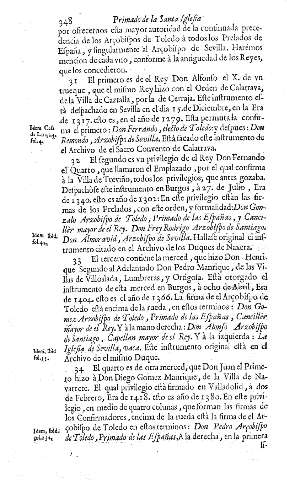 348 Primado de la Santa Iglesia
por ofrecernos esta mayor autoridad de la continuada prece-
dencia de los Arçobispos de Toledo à todos los Prelados de
España, y singularmente al Arçobispo de Sevilla. Harèmos
mencion de cada vno, conforme à la antiguedad de los Reyes,
que los concedieron.
31 El primero es el Rey Don Alfonso el X. de vn
trueque, que el mismo Rey hizo con el Orden de Calatrava,
de la Villa de Cartailla, por la de Carraja. Este instrumento es-
tà despachado en Sevilla en el dia 15 de Diziembre, en la Era
de 1317. esto es, en el año de 1279. Esta permuta la confir-
ma el primero: Don Fernando, electo de Toledo; y despues: Don
Remondo, Arzobispo de Sevilla. Està sacado este instrumento de
el Archivo de el Sacro Convento de Calatrava.
32 El segundo es vn privilegio de el Rey Don Fernando
el Quarto, que llamaron el Emplazado, por el qual confirma
à la Villa de Treviño, todos los privilegios, que antes gozaba.
Despachòse este instrumento en Burgos, à 27. de Julio, Era
de 1340. esto es año de 1302: En este privilegio estàn las fir-
mas de los Prelados, con este orden, y formalidad: Don Gon-
zalo Arzobispo de Toledo, Primado de las Españas, y Canci-
ller mayor de el Rey. Don Frey Rodrigo Arzobispo de Santiago.
Don Almoravid, Arzobispo de Sevilla. Hallase original el ins-
trumento citado en el Archivo de los Duques de Naxera.
33 El tercero contiene la merced, que hizo Don Henri-
que Segundo al Adelantado Don Pedro Manrique, de las Vi-
llas de Villoslada, Lumbreras, y Ortigosa. Està otorgado el
instrumento de esta merced en Burgos, à ocho de Abril, Era
de 1404. esto es. el año de 1366. La firma de el Arçobispo de
Toledo està encima de la rueda, en estos terminos: Don Go-
mez Arzobispo de Toledo, Primado de las Españas, Canciller
mayor de el Rey. Y à la mano derecha: Don Alonso Arzobispo
de Santiago, Capellan mayor de el Rey. Y à la izquierda: La
Iglesia de Sevilla, vaca. Este instrumento original està en el
Archivo de el mismo Duque.
34 El quarto es de otra merced, que Don Juan el Prime-
ro hizo à Don Diego Gomez Manrique, de la Villa de Na-
varrete. El qual privilegio està firmado en Valladolid, à dos
de Febrero, Era de 1418. esto es año de 1380. En este privi-
legio, en medio de quatro columnas, que forman las firmas de
los Confirmadores, encima de la rueda està la firma de el Ar-
çobispo de Toledo en estos terminos: Don Pedro Arzobispo
de Toledo, Primado de las Españas. A la derecha, en la primera
Idem, ibid.
Idem, ibid.
Idem, ibid.